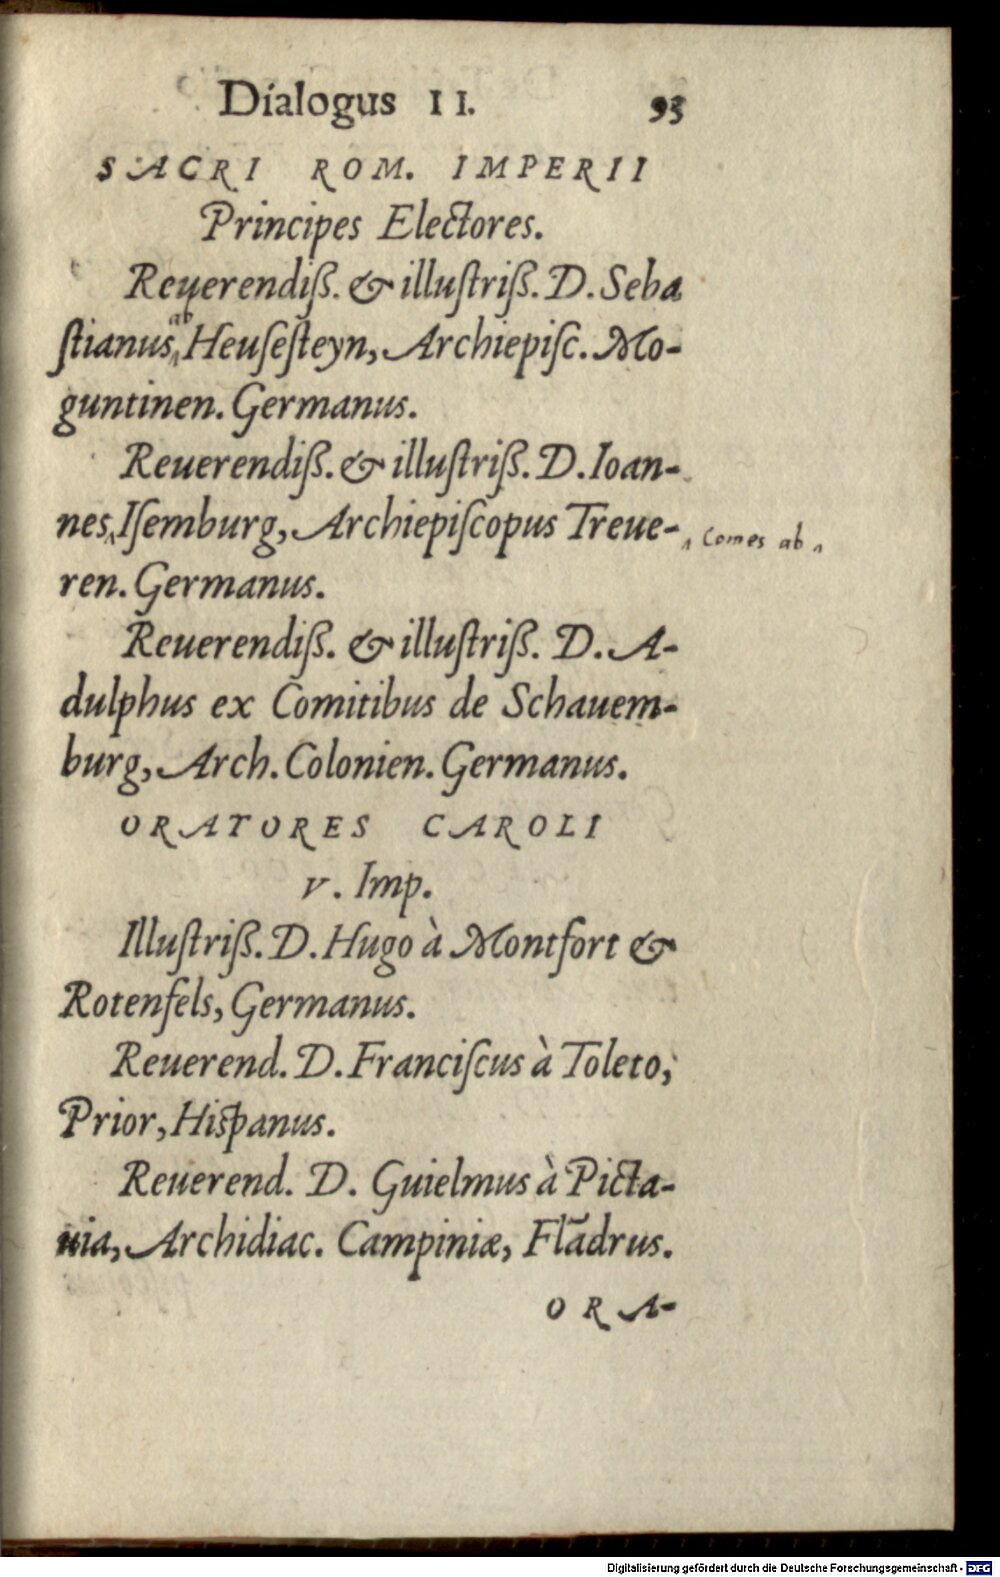 Dialogus II. 93
SACRI ROM. IMPERII
Principes Electores.
Reuerendiß. & illuſtriß. D. Seba
ab
ſtianus Heuſeſteyn, Archiepiſc. Mo-
guntinen. Germanus.
Reuerendiß. & illuſtriß. D. Ioan-
nes Iſemburg, Archiepiſcopus Treue- Comes ab
ren. Germanus.
Reuerendiß. & illuſtriß. D. A-
dulphus ex Comitibus de Schauem-
burg, Arch. Colonien. Germanus.
ORATORES CAROLI
V. Imp.
Illuſtriß. D. Hugo à Montfort &
Rotenfels, Germanus.
Reuerend. D. Franciſcus à Toleto,
Prior, Hiſpanus.
Reuerend. D. Guielmus à Picta-
uia, Archidiac. Campiniæ, Flādrus.
ORA-
Digitalisierung gefördert durch die Deutsche Forschungsgemeinschaft - DFG